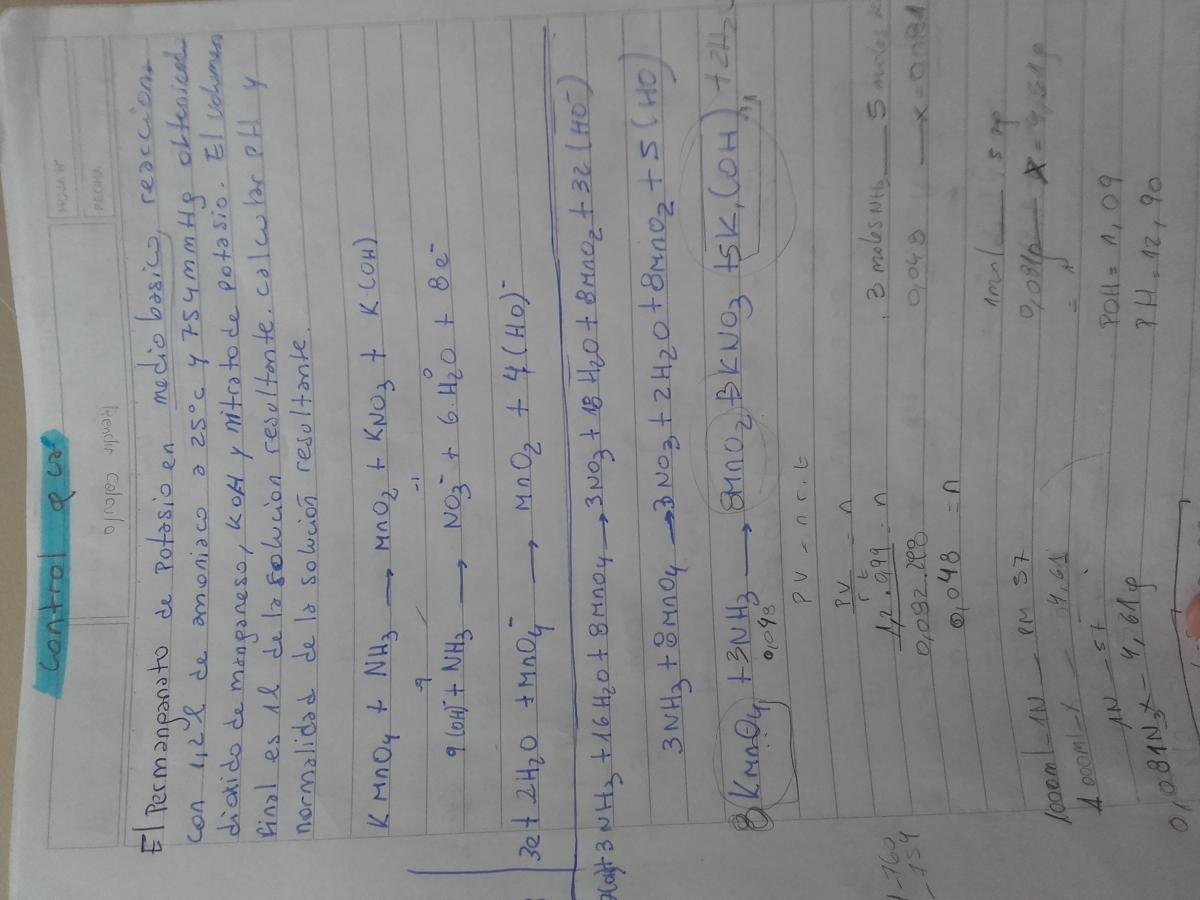 Control q
NOMBRE
FECHA
Rendir calculo
El Permanganato de Potasio en medio basico, reacciona
con 1,2 l de amoniaco a 25°c y 754 mmHg obteniendo
dioxido de manganeso, KOH y nitrato de potasio. El volumen
final es 1l de la solucion resultante. calcular PH y
normalidad de la solución resultante.
KMnO4 + NH3 → MnO2 + KNO3 + K(OH)
9(OH)⁻ + NH3 → NO3⁻ + 6 H2O + 8e⁻
3e + 2H2O + MnO4⁻ → MnO2 + 4(HO)⁻
+ 3NH3 + 16H2O + 8MnO4 → 3NO3 + 18H2O + 8MnO2 + 32(HO⁻)
3NH3 + 8MnO4 → 3NO3 + 2H2O + 8MnO2 + 5(HO)
8KMnO4 + 3NH3 → 8MnO2 + 3KNO3 + 5K(OH) + 2H2O
0,048
PV = n r. t
PV = n
r t
1,2 . 0,99 = n
0,082.298
0,048 = n
3 moles NH3 — 5 moles
0,048 — x = 0,081
760
754
1000ml — 1N — PM 57
1000ml — x — 4,61
1N — 57
x — 4,61g
0,081N
1mol — 57g
0,081 — x = 4,61g
POH = 1,09
PH = 12,90